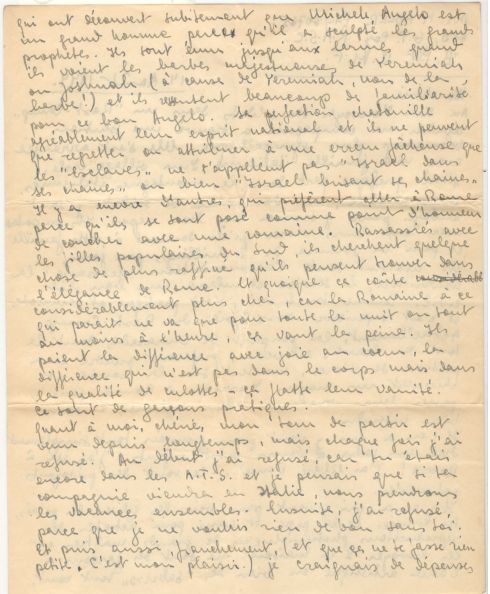 qui ont découvert subitement que Michele Angelo est
un grand homme parce qu'il a sculpté les grands
prophètes. Ils sont émus jusqu'aux larmes quand
ils voient les barbes majestueuses de Jeremiah
ou Joshuah (à cause de Jeremiah, non de la
barbe!) et ils ressentent beaucoup de familiarité
pour ce bon Angelo. Sa perfection chatouille
agréablement leur esprit national et ils ne peuvent
que regretter ou attribuer à une erreur fâcheuse que
les "Esclaves" ne s'appellent pas "Israël dans
ses chaînes" ou bien "Israel brisant ses chaînes".
Il y a encore d'autres, qui préfèrent aller à Rome
parce qu'ils se sont posé comme point d'honneur
de coucher avec une romaine. Rassasiés avec
les filles populaires du Sud, ils cherchent quelque
chose de plus raffiné qu'ils pensent trouver dans
l'élégance de Rome. Et quoique ça coûte
considérablement plus cher, car la Romaine à ce
qui parait ne va que pour toute la nuit ou tout
au moins à l'heure, ça vaut la peine. Ils
paient la différence avec joie au coeur, la
différence qui n'est pas dans le corps mais dans
la qualité de culottes - ça flatte leur vanité.
Ce sont de garçons pratiques.
Quant à moi, chéri, mon tour de partir est
venu depuis longtemps, mais chaque fois j'ai
refusé. Au début j'ai refusé, car tu étais
encore dans les A.T.S. et je pensais que si ta
compagnie viendra en Italie, nous prendrons
les vacances ensembles. Ensuite, j'ai refusé,
parce que je ne voulais rien de bon sans toi.
Et puis aussi, franchement, (et que ça ne te fasse rien
petite. C'est mon plaisir!) je craignais de dépenses